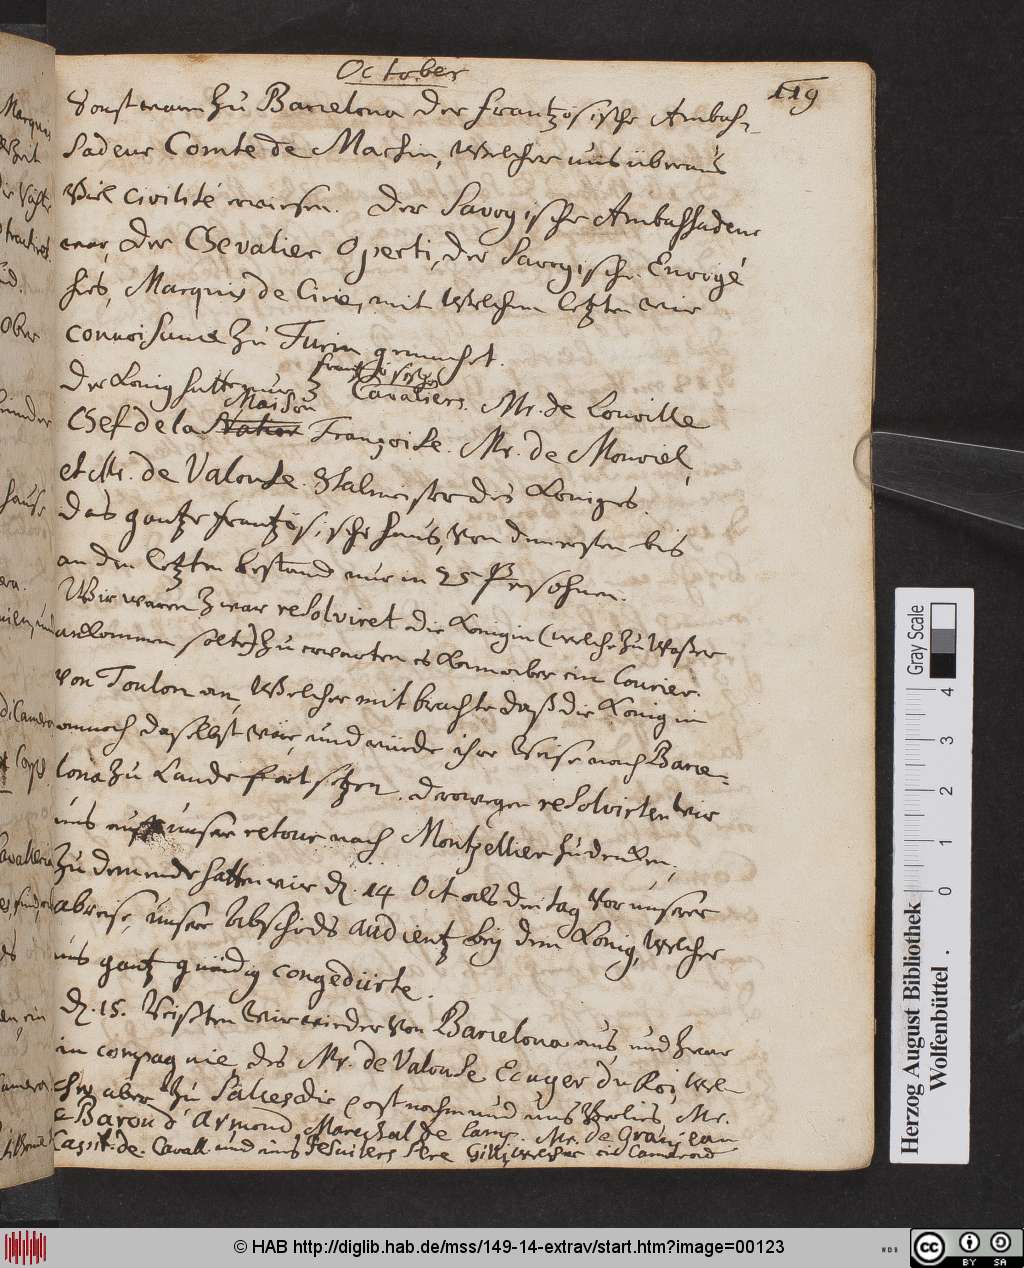 October
119
Sonst war zu Barcelona der frantzösische Ambaß-
sadeur Comte de Marsin, Welcher uns überaus
Viel civilité erwiesen. Der Savoyische Ambassadeur
war, der Chevalier Operti, der Savoyische Envoyé
hies, Marquis de Cirie, mit Welchem letzten wir
connoisance zu Turin gemacht.
frantzösische
Der König hatte nur 3 Cavaliers. Mr. de Louville
Maison
Chef de la Francoise. Mr. de Monviel,
et Mr. de Valouse Stalmeister des Königes.
das gantze frantzösische haus, von dem ersten bis
an den letzten bestand nur in 25 Persohnen.
Wir waren zwar resolviret die Königin (welche zu Waßer
ankommen solte) zu erwarten es kam aber ein Courier
von Toulon an, Welcher mit brachte daß die Königin
annoch daselbst wär, und würde ihre Reise nach Barce-
lona zu Lande fortsetzen. derowegen resolvirten wir
uns auf unser retour nach Montpellier zu dencken,
Zu dem ende hatten wir d. 14 Oct als den tag vor unserer
abreise, unsere Abschieds audientz bey dem König, Welcher
uns gantz gnädig congediirte.
d. 15. Reißten Wir wieder von Barcelona aus und zwar
in compagnie des Mr. de Valouse Ecuyer du Roi, wel-
cher aber zu Salces die post nahm und uns Verlies, Mr.
le Baron d'Armond Marechal de Camp. Mr. de Granjean
Capit. de. Cavall und ein Jesuiters Pere Gilli welcher ein Camerad